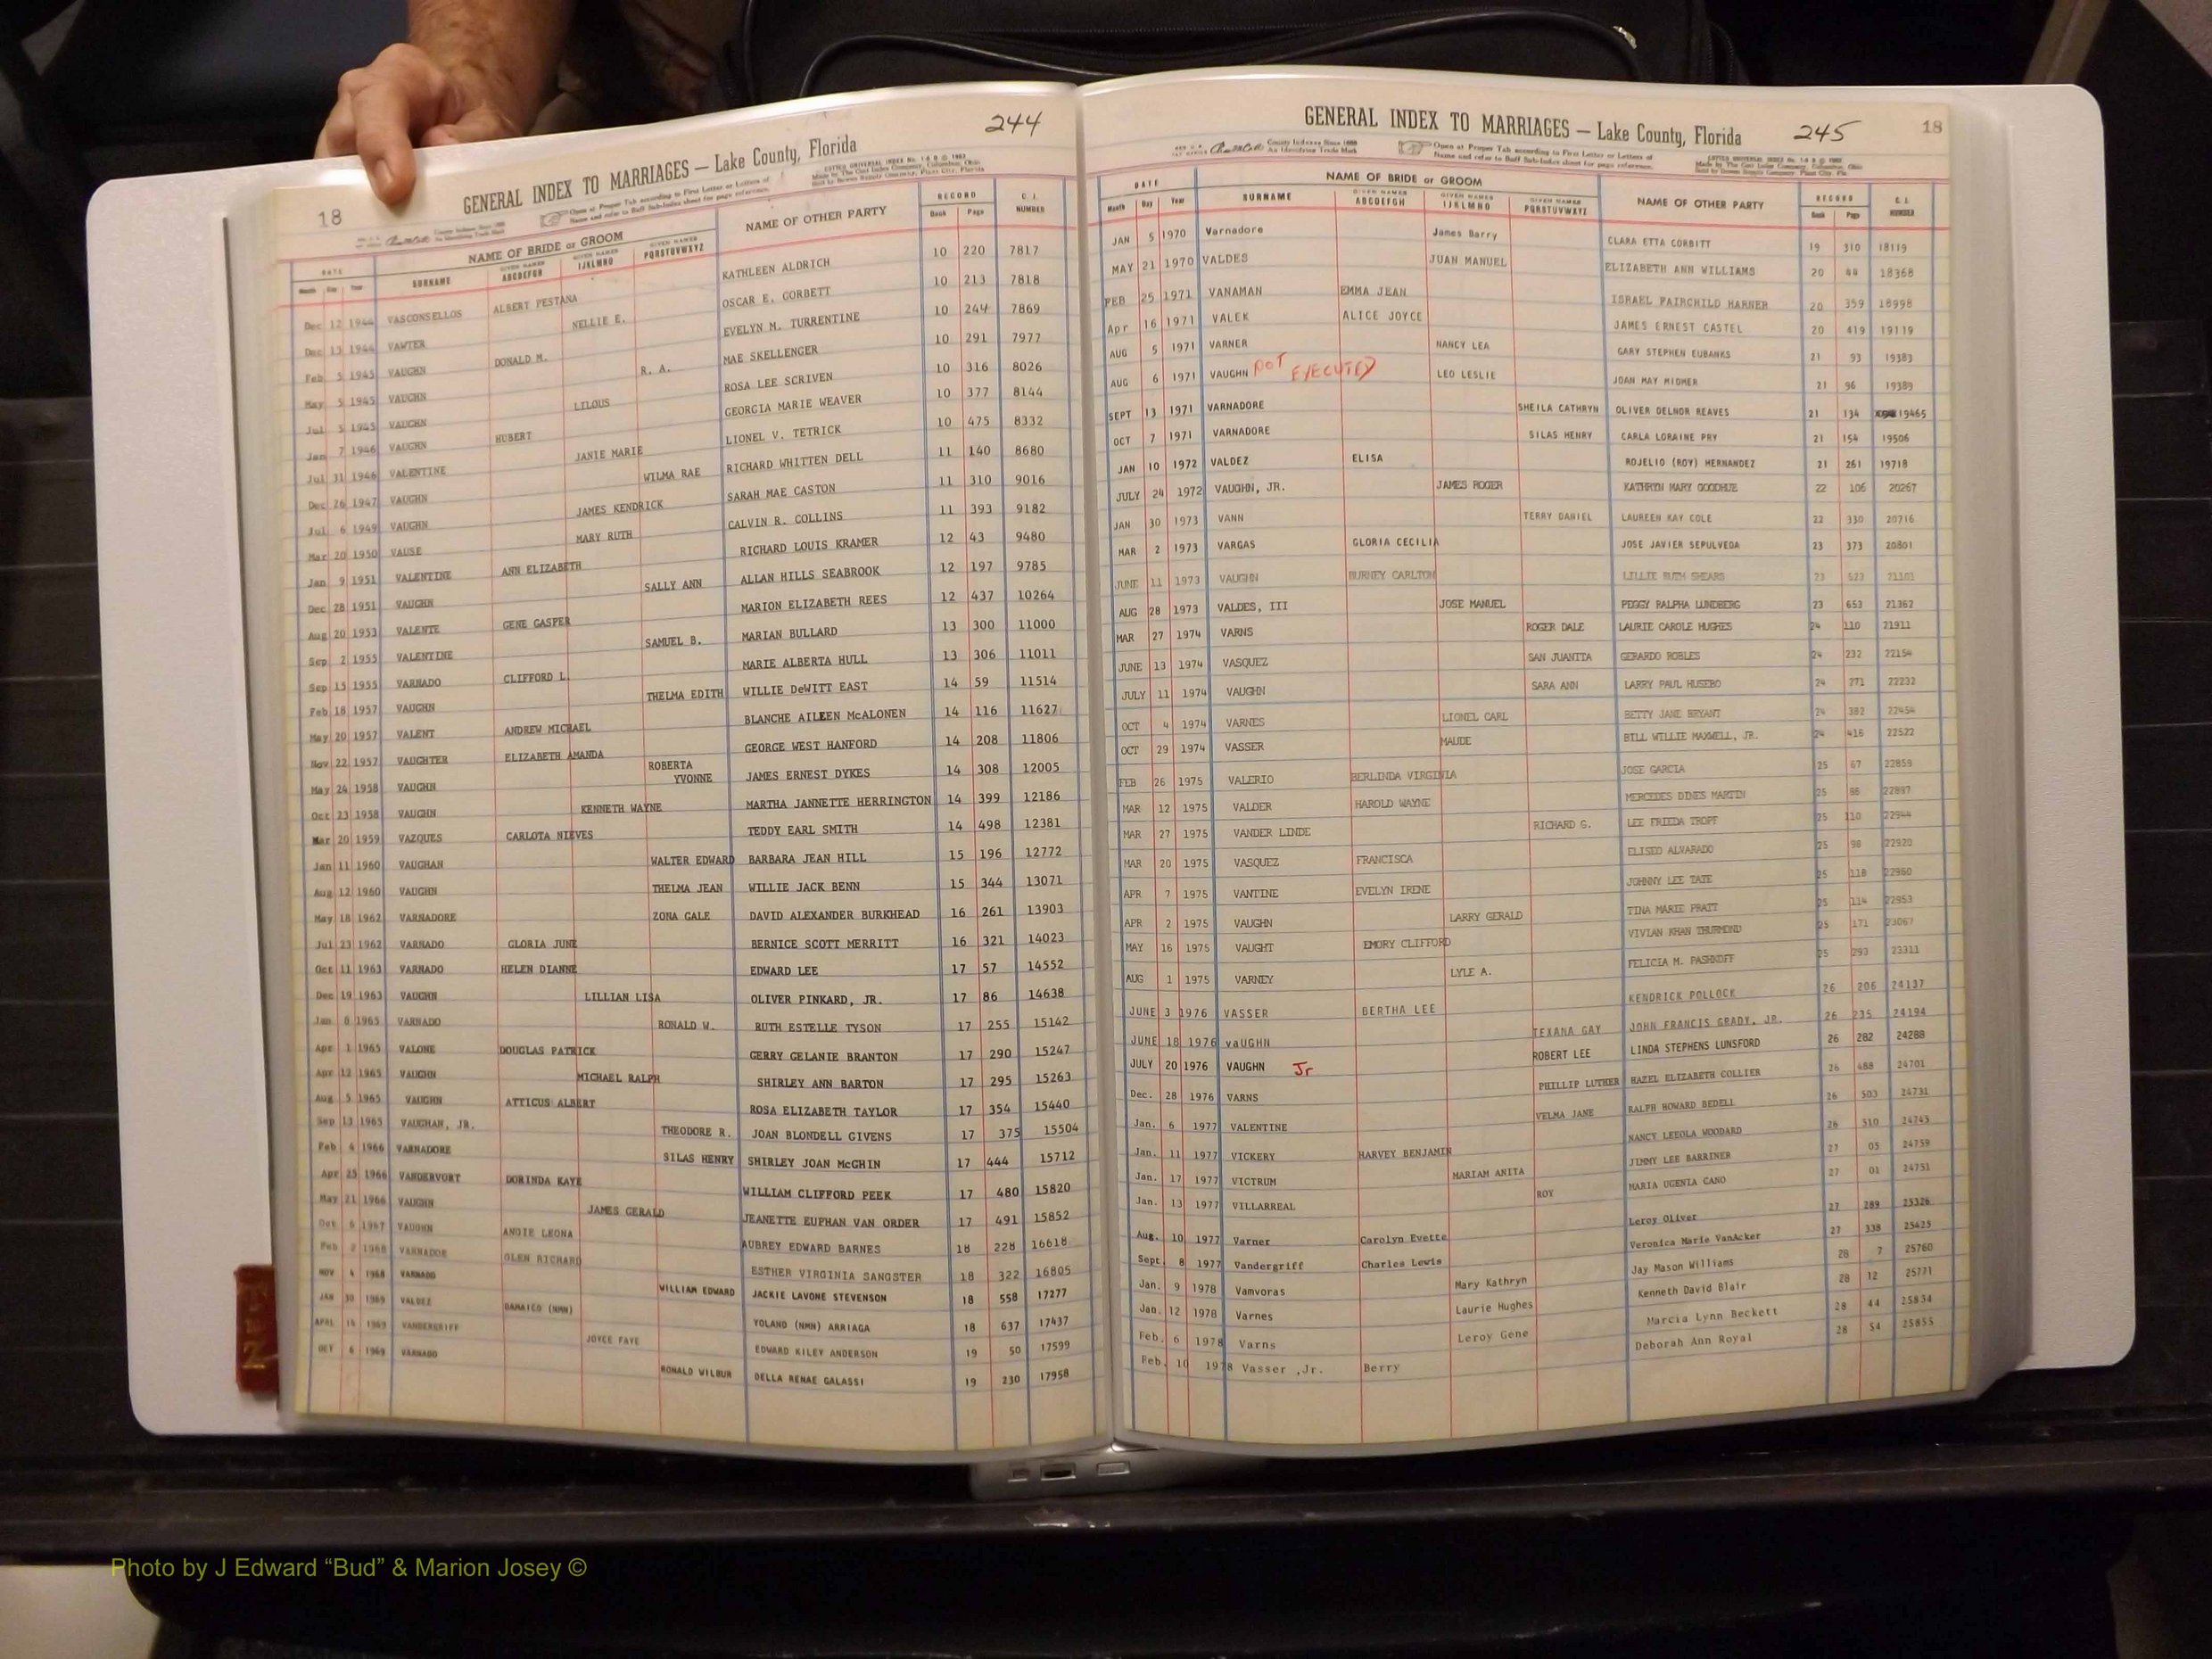 244
18
GENERAL INDEX TO MARRIAGES — Lake County, Florida
County Indexes Since 1888
An Identifying Trade Mark
Open at Proper Tab according to First Letter or Letters of
Name and refer to Buff Sub-Index sheet for page reference.
DATE NAME OF BRIDE or GROOM NAME OF OTHER PARTY RECORD C. I. NUMBER
Month Day Year SURNAME GIVEN NAMES ABCDEFGH GIVEN NAMES IJKLMNO GIVEN NAMES PQRSTUVWXYZ Book Page
Dec 12 1944 VASCONSELLOS ALBERT PESTANA KATHLEEN ALDRICH 10 220 7817
Dec 13 1944 VAWTER NELLIE E. OSCAR E. CORBETT 10 213 7818
Feb 5 1945 VAUGHN DONALD M. EVELYN M. TURRENTINE 10 244 7869
May 5 1945 VAUGHN R. A. MAE SKELLENGER 10 291 7977
Jul 5 1945 VAUGHN LILOUS ROSA LEE SCRIVEN 10 316 8026
Jan 7 1946 VAUGHN HUBERT GEORGIA MARIE WEAVER 10 377 8144
Jul 31 1946 VALENTINE JANIE MARIE LIONEL V. TETRICK 10 475 8332
Dec 26 1947 VAUGHN WILMA RAE RICHARD WHITTEN DELL 11 140 8680
Jul 6 1949 VAUGHN JAMES KENDRICK SARAH MAE CASTON 11 310 9016
Mar 20 1950 VAUSE MARY RUTH CALVIN R. COLLINS 11 393 9182
Jan 9 1951 VALENTINE ANN ELIZABETH RICHARD LOUIS KRAMER 12 43 9480
Dec 28 1951 VAUGHN SALLY ANN ALLAN HILLS SEABROOK 12 197 9785
Aug 20 1953 VALENTE GENE GASPER MARION ELIZABETH REES 12 437 10264
Sep 2 1955 VALENTINE SAMUEL B. MARIAN BULLARD 13 300 11000
Sep 15 1955 VARNADO CLIFFORD L. MARIE ALBERTA HULL 13 306 11011
Feb 18 1957 VAUGHN THELMA EDITH WILLIE DeWITT EAST 14 59 11514
May 20 1957 VALENT ANDREW MICHAEL BLANCHE AILEEN McALONEN 14 116 11627
Nov 22 1957 VAUGHTER ELIZABETH AMANDA GEORGE WEST HANFORD 14 208 11806
May 24 1958 VAUGHN ROBERTA YVONNE JAMES ERNEST DYKES 14 308 12005
Oct 23 1958 VAUGHN KENNETH WAYNE MARTHA JANNETTE HERRINGTON 14 399 12186
Mar 20 1959 VAZQUES CARLOTA NIEVES TEDDY EARL SMITH 14 498 12381
Jan 11 1960 VAUGHAN WALTER EDWARD BARBARA JEAN HILL 15 196 12772
Aug 12 1960 VAUGHN THELMA JEAN WILLIE JACK BENN 15 344 13071
May 18 1962 VARNADORE ZONA GALE DAVID ALEXANDER BURKHEAD 16 261 13903
Jul 23 1962 VARNADO GLORIA JUNE BERNICE SCOTT MERRITT 16 321 14023
Oct 11 1963 VARNADO HELEN DIANNE EDWARD LEE 17 57 14552
Dec 19 1963 VAUGHN LILLIAN LISA OLIVER PINKARD, JR. 17 86 14638
Jan 8 1965 VARNADO RONALD W. RUTH ESTELLE TYSON 17 255 15142
Apr 1 1965 VALONE DOUGLAS PATRICK GERRY GELANIE BRANTON 17 290 15247
Apr 12 1965 VAUGHN MICHAEL RALPH SHIRLEY ANN BARTON 17 295 15263
Aug 5 1965 VAUGHN ATTICUS ALBERT ROSA ELIZABETH TAYLOR 17 354 15440
Sep 13 1965 VAUGHAN, JR. THEODORE R. JOAN BLONDELL GIVENS 17 375 15504
Feb 4 1966 VARNADORE SILAS HENRY SHIRLEY JOAN McGHIN 17 444 15712
Apr 25 1966 VANDERVORT DORINDA KAYE WILLIAM CLIFFORD PEEK 17 480 15820
May 21 1966 VAUGHN JAMES GERALD JEANETTE EUPHAN VAN ORDER 17 491 15852
Oct 6 1967 VAUGHN ANGIE LEONA AUBREY EDWARD BARNES 18 228 16618
Feb 2 1968 VARNADOR GLEN RICHARD ESTHER VIRGINIA SANGSTER 18 322 16805
NOV 4 1968 VARNADO WILLIAM EDWARD JACKIE LAVONE STEVENSON 18 558 17277
JAN 30 1969 VALDEZ DAMAICO (NMN) YOLAND (NMN) ARRIAGA 18 637 17437
APRL 1969 VANDERGRIFF JOYCE FAYE EDWARD KILEY ANDERSON 19 50 17599
OCT 6 1969 VARNADO RONALD WILBUR DELLA RENAE GALASSI 19 230 17958
GENERAL INDEX TO MARRIAGES — Lake County, Florida
245
18
County Indexes Since 1888
An Identifying Trade Mark
Open at Proper Tab according to First Letter or Letters of
Name and refer to Buff Sub-Index sheet for page reference.
DATE NAME OF BRIDE or GROOM NAME OF OTHER PARTY RECORD C. I. NUMBER
Month Day Year SURNAME GIVEN NAMES ABCDEFGH GIVEN NAMES IJKLMNO GIVEN NAMES PQRSTUVWXYZ Book Page
JAN 5 1970 Varnadore James Barry CLARA ETTA CORBITT 19 310 18119
MAY 21 1970 VALDES JUAN MANUEL ELIZABETH ANN WILLIAMS 20 44 18368
FEB 25 1971 VANAMAN EMMA JEAN ISRAEL FAIRCHILD HARNER 20 359 18998
Apr 16 1971 VALEK ALICE JOYCE JAMES ERNEST CASTEL 20 419 19119
AUG 5 1971 VARNER NANCY LEA GARY STEPHEN EUBANKS 21 93 19383
AUG 6 1971 VAUGHN NOT EXECUTED LEO LESLIE JOAN MAY MIDMER 21 96 19389
SEPT 13 1971 VARNADORE SHEILA CATHRYN OLIVER DELNOR REAVES 21 134 19465
OCT 7 1971 VARNADORE SILAS HENRY CARLA LORAINE PRY 21 154 19506
JAN 10 1972 VALDEZ ELISA ROJELIO (ROY) HERNANDEZ 21 261 19718
JULY 24 1972 VAUGHN, JR. JAMES ROGER KATHRYN MARY GOODHUE 22 106 20267
JAN 30 1973 VANN TERRY DANIEL LAUREEN KAY COLE 22 330 20716
MAR 2 1973 VARGAS GLORIA CECILIA JOSE JAVIER SEPULVEDA 23 373 20801
JUNE 11 1973 VAUGHN BURNEY CARLTON LILLIE RUTH SHEARS 23 523 21101
AUG 28 1973 VALDES, III JOSE MANUEL PEGGY RALPHA LUNDBERG 23 653 21362
MAR 27 1974 VARNS ROGER DALE LAURIE CAROLE HUGHES 24 110 21911
JUNE 13 1974 VASQUEZ SAN JUANITA GERARDO ROBLES 24 232 22154
JULY 11 1974 VAUGHN SARA ANN LARRY PAUL HUSEBO 24 271 22232
OCT 4 1974 VARNES LIONEL CARL BETTY JANE BRYANT 24 382 22454
OCT 29 1974 VASSER MAUDE BILL WILLIE MAXWELL, JR. 24 416 22522
FEB 26 1975 VALERIO BERLINDA VIRGINIA JOSE GARCIA 25 67 22859
MAR 12 1975 VALDER HAROLD WAYNE MERCEDES DINES MARTIN 25 86 22897
MAR 27 1975 VANDER LINDE RICHARD G. LEE FRIEDA TROPF 25 110 22944
MAR 20 1975 VASQUEZ FRANCISCA ELISEO ALVARADO 25 98 22920
APR 7 1975 VANTINE EVELYN IRENE JOHNNY LEE TATE 25 118 22960
APR 2 1975 VAUGHN LARRY GERALD TINA MARIE PRATT 25 114 22953
MAY 16 1975 VAUGHT EMORY CLIFFORD VIVIAN KHAN THURMOND 25 171 23067
AUG 1 1975 VARNEY LYLE A. FELICIA M. PASHKOFF 25 293 23311
JUNE 3 1976 VASSER BERTHA LEE KENDRICK POLLOCK 26 206 24137
JUNE 18 1976 vaUGHN TEXANA GAY JOHN FRANCIS GRADY, JR. 26 235 24194
JULY 20 1976 VAUGHN Jr ROBERT LEE LINDA STEPHENS LUNSFORD 26 282 24288
Dec. 28 1976 VARNS PHILLIP LUTHER HAZEL ELIZABETH COLLIER 26 488 24701
Jan. 6 1977 VALENTINE VELMA JANE RALPH HOWARD BEDELL 26 503 24731
Jan. 11 1977 VICKERY HARVEY BENJAMIN NANCY LEEOLA WOODARD 26 510 24745
Jan. 17 1977 VICTRUM MARIAM ANITA JIMMY LEE BARRINER 27 05 24759
Jan. 13 1977 VILLARREAL ROY MARIA UGENIA CANO 27 01 24751
Aug. 10 1977 Varner Carolyn Evette Leroy Oliver 27 289 25326
Sept. 8 1977 Vandergriff Charles Lewis Veronica Marie VanAcker 27 338 25425
Jan. 9 1978 Vamvoras Mary Kathryn Jay Mason Williams 28 7 25760
Jan. 12 1978 Varnes Laurie Hughes Kenneth David Blair 28 12 25771
Feb. 6 1978 Varns Leroy Gene Marcia Lynn Beckett 28 44 25834
Feb. 10 1978 Vasser ,Jr. Berry Deborah Ann Royal 28 54 25855
Photo by J Edward “Bud” & Marion Josey ©